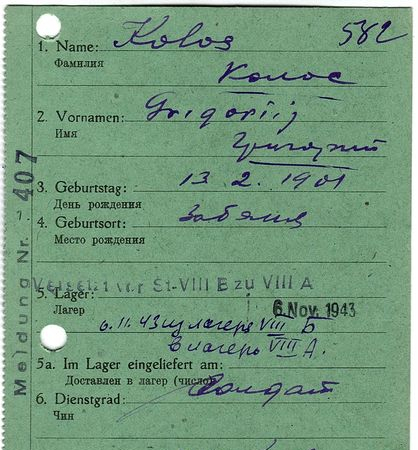 1. Name: Kolos 582
Фамилия Колос
2. Vornamen: Grigorij
Имя Григорий
3. Geburtstag: 13. 2. 1901
День рождения
4. Geburtsort:
Место рождения
Versetzt von St-VIII E zu VIII A
5. Lager: 6. Nov. 1943
Лагерь 6.11.43 из лагеря VIII Б
в лагерь VIII A.
5a. Im Lager eingeliefert am:
Доставлен в лагерь (число)
6. Dienstgrad: Солдат
Чин
Meldung Nr. 407